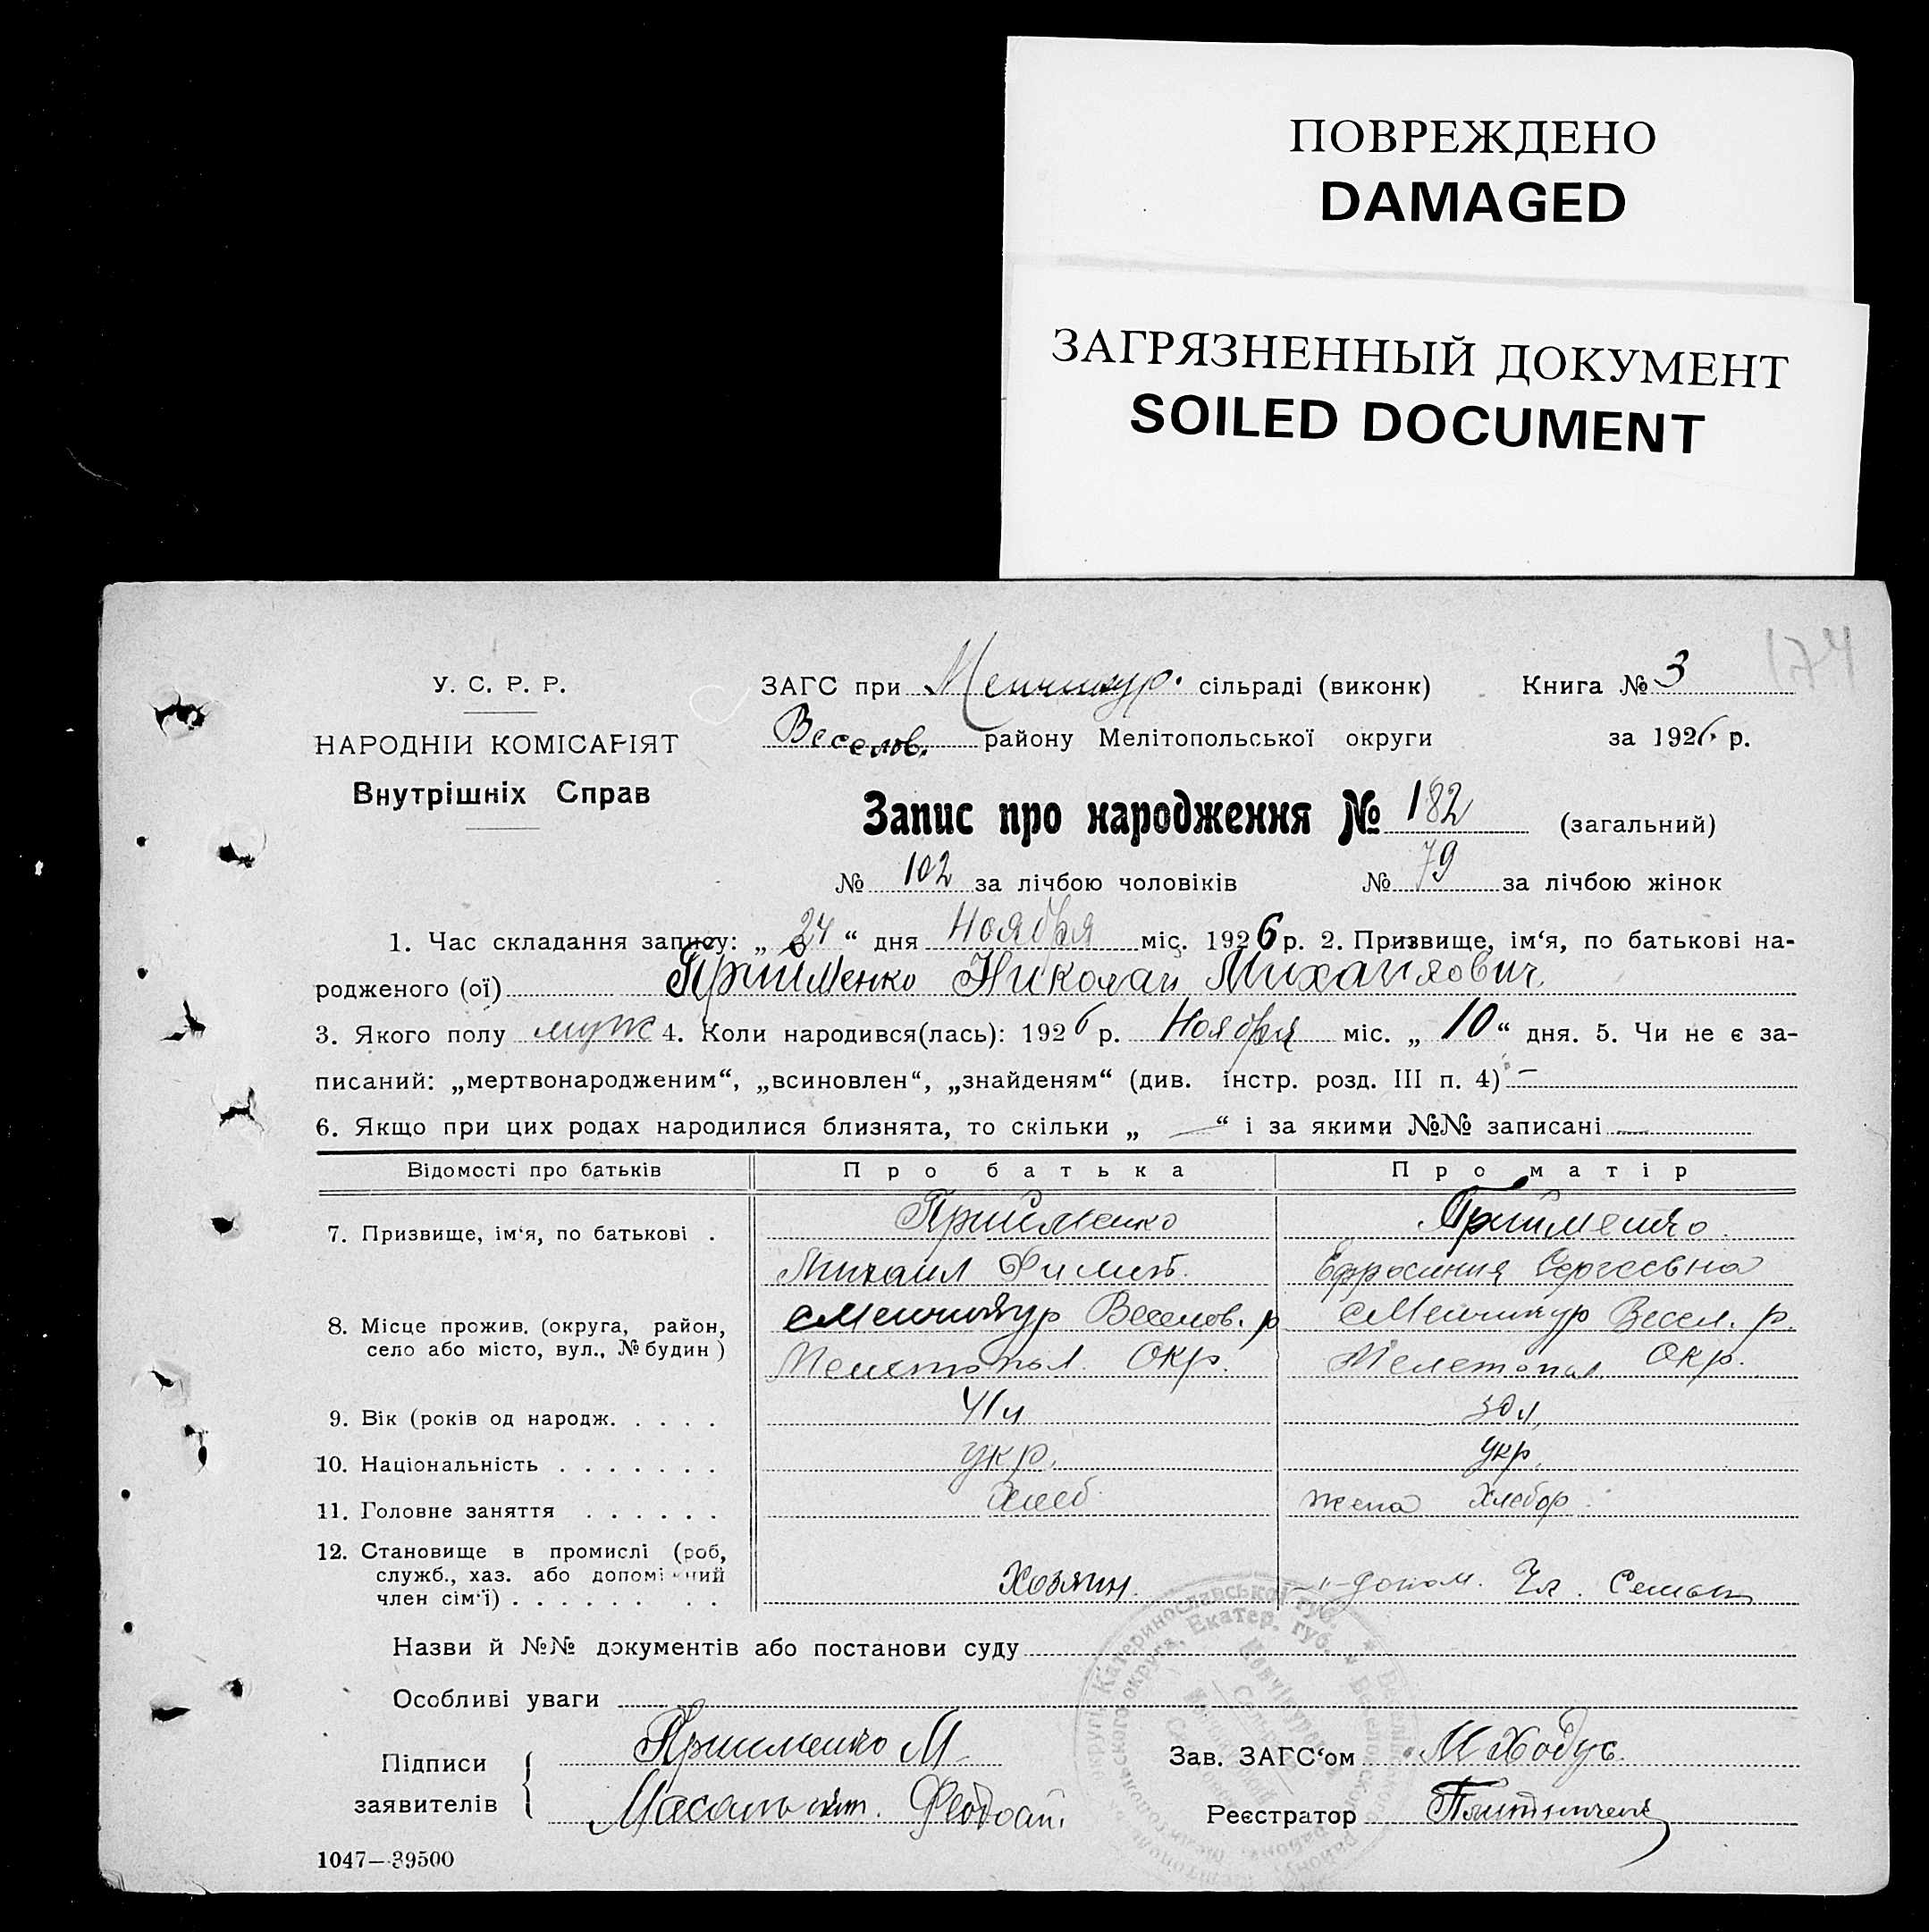 ПОВРЕЖДЕНО
DAMAGED
ЗАГРЯЗНЕННЫЙ ДОКУМЕНТ
SOILED DOCUMENT
174
У. С. Р. Р.
НАРОДНІЙ КОМІСАРІЯТ
Внутрішніх Справ
ЗАГС при Менчикур. сільраді (виконк) Книга № 3
Веселов. району Мелітопольської округи за 1926 р.
Запис про народження № 182 (загальний)
№ 102 за лічбою чоловіків № 79 за лічбою жінок
1. Час складання запису: „ 24 “ дня Ноября міс. 1926 р. 2. Призвище, ім‘я, по батькові на-
родженого (ої) Прийменко Николай Михайлович
3. Якого полу муж 4. Коли народився(лась): 1926 р. Ноября міс. „ 10 “ дня. 5. Чи не є за-
писаний: „мертвонародженим“, „всиновлен“, „знайденям“ (див. інстр. розд. III п. 4) —
6. Якщо при цих родах народилися близнята, то скільки „ — “ і за якими №№ записані —
Відомості про батьків Про батька Про матір
7. Призвище, ім‘я, по батькові . Прийменко Прийменко
Михаил Ефросиния Сергеевна
8. Місце прожив. (округа, район, село або місто, вул., № будин) с Менчикур Веселов. р с Менчикур Весел. р.
Мелетопол. Окр. Мелетопол. Окр.
9. Вік (років од народж. . . . . 41 л 30 л,
10. Національність . . . . . . . укр. укр.
11. Головне заняття . . . . . . хлеб жена Хлебор.
12. Становище в промислі (роб,
служб., хаз. або допоміжний
член сім‘ї) . . . . . . . . Хозяин. допом. Чл. Семьи
Назви й №№ документів або постанови суду
Особливі уваги
Підписи заявителів Прийменко М Зав. ЗАГС‘ом М Ходус
Реєстратор
1047—39500